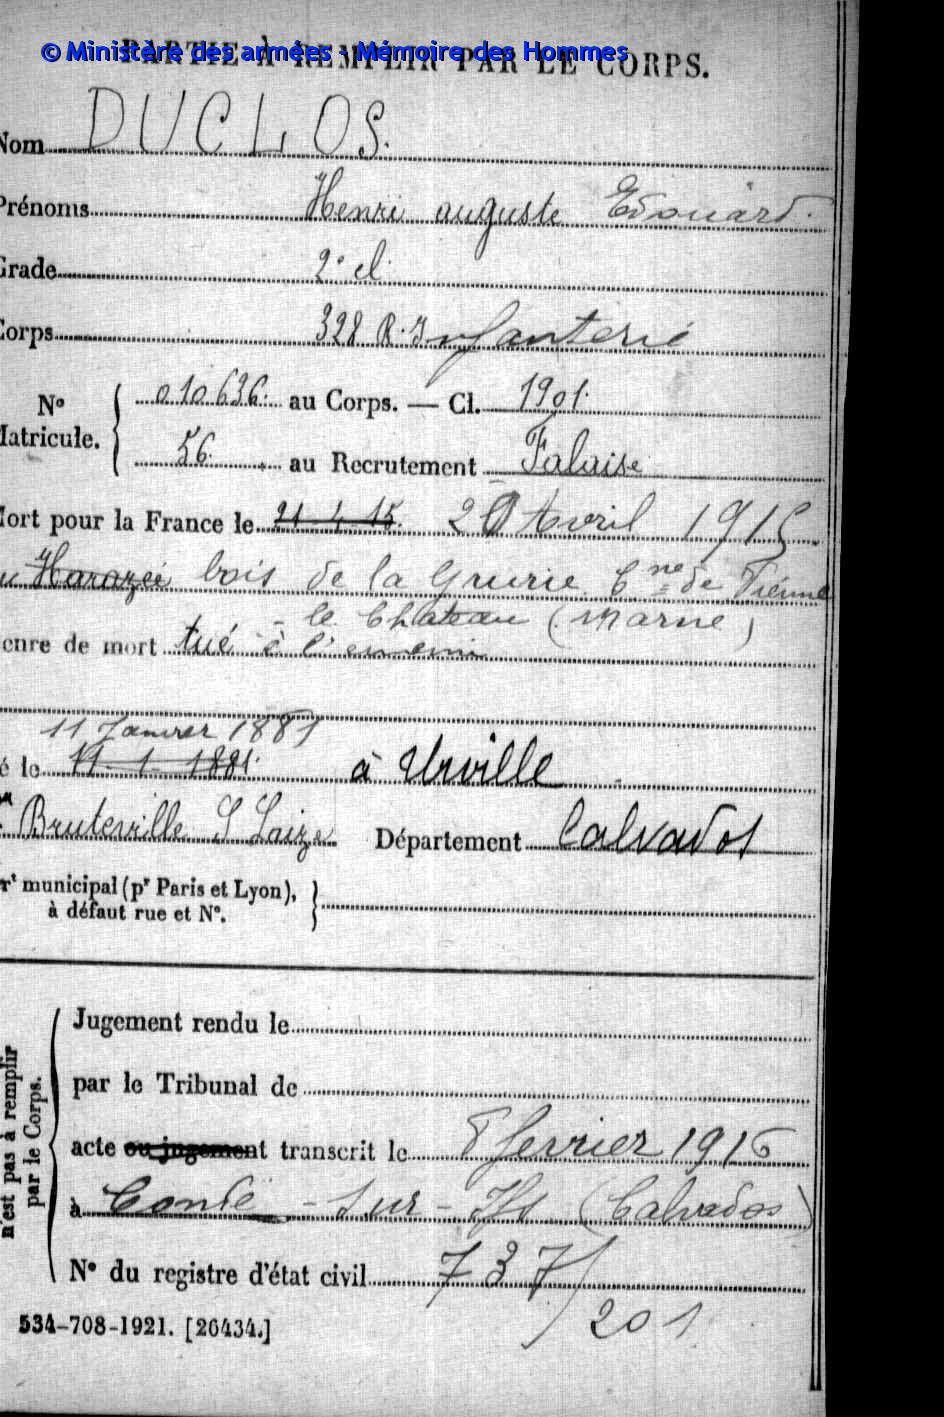 © Ministère des armées - Mémoire des Hommes
PARTIE À REMPLIR PAR LE CORPS.
Nom DUCLOS.
Prénoms Henri auguste Edouard.
Grade 2e cl
Corps 328 R. Infanterie
No 010636 au Corps. — Cl. 1901.
Matricule. 56. au Recrutement Falaise
Mort pour la France le 21-4-15. 20 Avril 1915.
Harazée bois de la Grurie Cne de Vienne
- le Chateau (Marne)
Genre de mort tué à l'ennemi
11 Janvier 1881
é le 11-1-1881. à Urville
Bruteville S Laize Département Calvados
rt municipal (pr Paris et Lyon),
à défaut rue et No.
n'est pas à remplir
par le Corps.
Jugement rendu le
par le Tribunal de
acte ou jugement transcrit le 8 fevrier 1916
à Condé - sur - Ifs (Calvados)
No du registre d'état civil 737/
201
534-708-1921. [26434.]